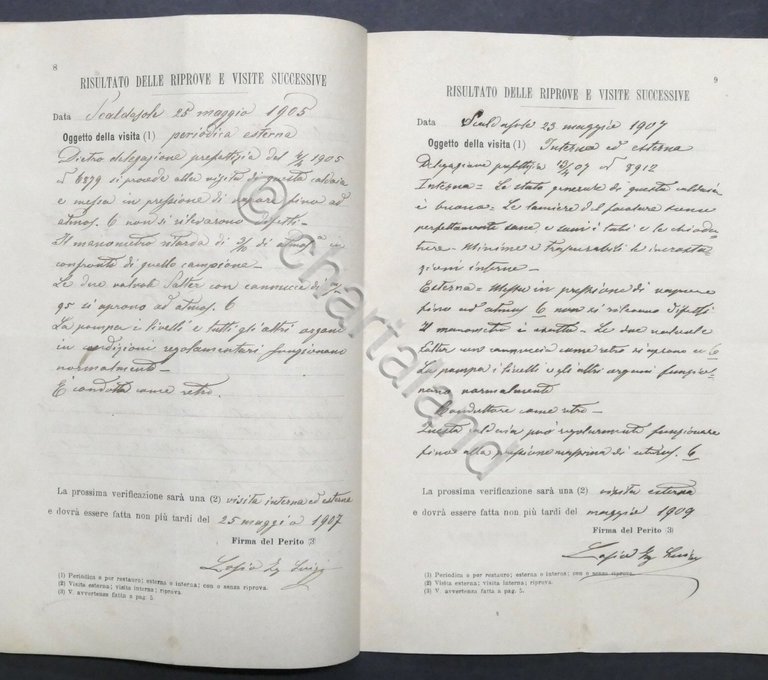 8
RISULTATO DELLE RIPROVE E VISITE SUCCESSIVE
Data Scaldasole 25 maggio 1905
Oggetto della visita (1) periodica esterna
Dietro delegazione prefettizia del 1905
N 6379 si procede alla visita di questa caldaia
e messa in pressione di vapore fino ad
atmos. 6 non si rilevarono difetti.
Il manometro ritarda di 2/10 di atmosª in
confronti di quello campione
Le due valvole Salter con cannuccie di
95 si aprono ad atmos. 6
La pompa i livelli e tutti gli altri organi
in condizioni regolamentari funzionano
normalmente
È condotta come retro.
La prossima verificazione sarà una (2) visita interna ed esterna
e dovrà essere fatta non più tardi del 25 maggio 1907
Firma del Perito (3
Losio Ing Luigi
(1) Periodica o per restauro; esterna o interna; con o senza riprova.
(2) Visita esterna; visita interna; riprova.
(3) V. avvertenza fatta a pag. 5.
9
RISULTATO DELLE RIPROVE E VISITE SUCCESSIVE
Data Scaldasole 23 maggio 1907
Oggetto della visita (1) Interna ed esterna
Delegazione prefettizia 07 N 8912
Interna = Lo stato generale di questa caldaia
è buono = Le lamiere del focolare sono
perfettamente sane, e sani i tubi e le chioda-
ture - Minime e trascurabili le incrosta-
zioni interne -
Esterna = Messa in pressione di vapore
fino ad atmos 6 non si rilevano difetti
Il manometro è esatto - Le due valvole
Salter con cannuccia come retro si aprono a 6
La pompa i livelli e gli altri organi funzio-
nano normalmente
Conduttore come retro -
Questa caldaia può regolarmente funzionare
fino alla pressione massima di atmos. 6
La prossima verificazione sarà una (2) visita esterna
e dovrà essere fatta non più tardi del maggio 1909
Firma del Perito (3)
Losio Ing Luigi
(1) Periodica o per restauro; esterna o interna; con o senza riprova.
(2) Visita esterna; visita interna; riprova.
(3) V. avvertenza fatta a pag. 5.
© chartaland